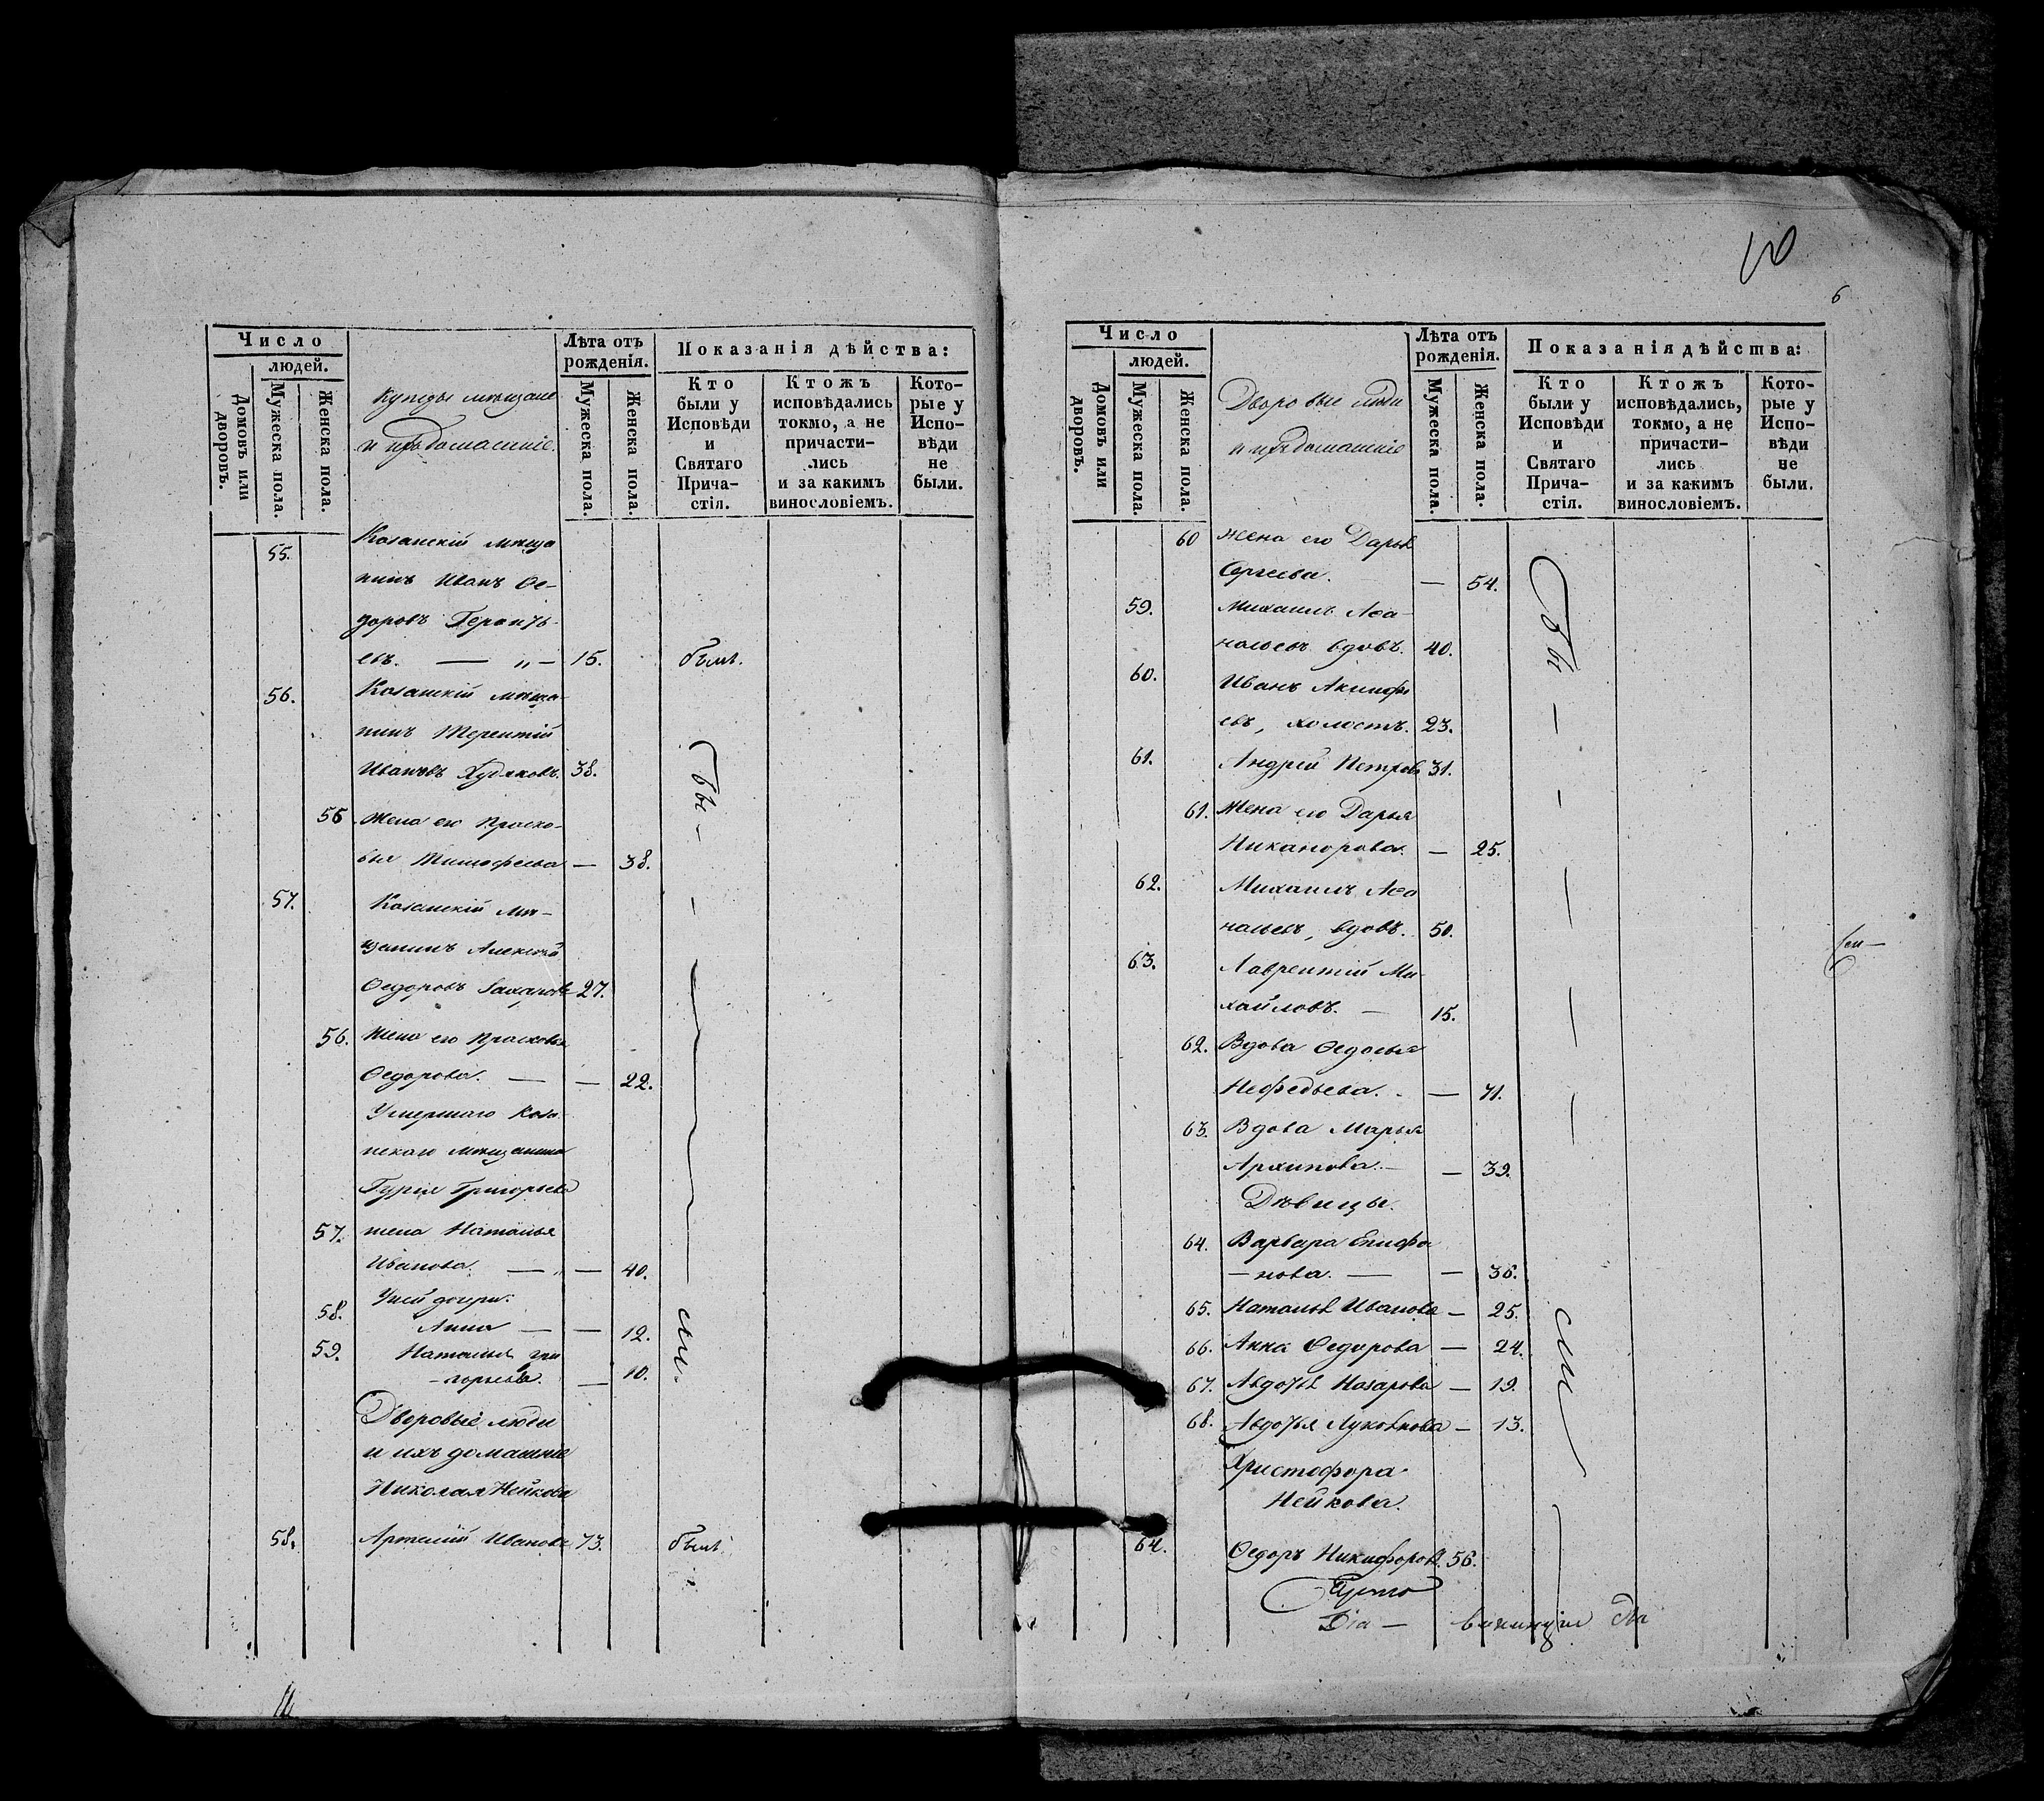 Число
людей.
Домовъ или дворовъ.
Мужеска пола.
Женска пола.
Купецы мѣщане
и ихъ домашніе.
Лѣта отъ
рожденія.
Мужеска пола.
Женска пола.
Показанія дѣйства:
Кто
были у
Исповѣди
и
Святаго
Прича-
стія.
Ктожъ
исповѣдались
токмо, а не
причасти-
лись
и за какимъ
винословіемъ.
Кото-
рые у
Испо-
вѣди
не
были.
55. Казанскій мѣща
нинъ Иванъ Ѳе-
доровъ Геронть-
евъ. — „ — 15. былъ.
56. Казанскій мѣща-
нинъ Терентій
Ивановъ Худяковъ. 38.
55 Жена его Праско-
вья Тимофеева — 38.
57. Казанскій мѣ-
щанинъ Алексѣй
Ѳедоровъ 27.
56. Жена его Прасковья
Ѳедорова. — — 22.
Умершаго Каза-
нскаго мѣщанина
Гурія Григорьева
57. жена Наталья
Иванова. — „ — 40.
58. У ней дочери:
Анна — — 12.
59. Наталья Гри
-горьева. — 10.
бы — — сли.
Дворовые люди
и ихъ домашніе
Николая Нейкова
58. Артемій Ивановъ 73. былъ.
10
6
Число
людей.
Домовъ или дворовъ.
Мужеска пола.
Женска пола.
Дворовые люди
и ихъ домашніе
Лѣта отъ
рожденія.
Мужеска пола.
Женска пола.
Показанія дѣйства:
Кто
были у
Исповѣди
и
Святаго
Прича-
стія.
Ктожъ
исповѣдались,
токмо, а не
причасти-
лись
и за какимъ
винословіемъ.
Кото-
рые у
Испо-
вѣди
не
были.
60 Жена его Дарья
Сергеева. — 54.
59. Михаилъ Аѳа-
насьевъ вдовъ. 40.
60. Иванъ Акинфі
евъ, холостъ. 23.
61. Андрей Петровъ 31.
61. Жена его Дарья
Никанорова. — 25.
62. Михаилъ Аѳа
насьевъ, вдовъ. 50.
63. Лаврентій Ми-
хайловъ. — 15.
62. Вдова Ѳедосья
Нефедьева. — 71.
63. Вдова Марья
Архипова. — — 39.
Дѣвицы.
64. Варвара Епифа
— нова. — — 36.
65. Наталья Иванова — 25.
66. Анна Ѳедорова — 24.
67. Авдотья Назарова — 19.
68. Авдотья Луковнова — 13.
Христофора
Нейкова.
64. Ѳедоръ Никифоровъ. 56.
Бы — — — — — — сли